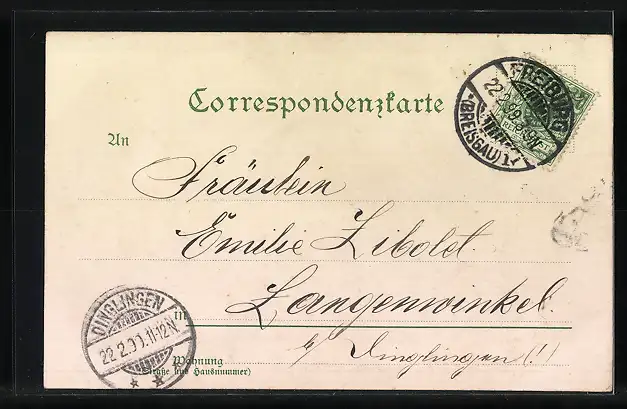 Correspondenzkarte
FREIBURG
22.2.99
(BREISGAU)
An
Fräulein
Emilie Zibolet.
Langenwinkel.
DINGLINGEN
22.2.99.11-12N
in
b/ Dinglingen (!)
Wohnung
(Straße und Hausnummer)